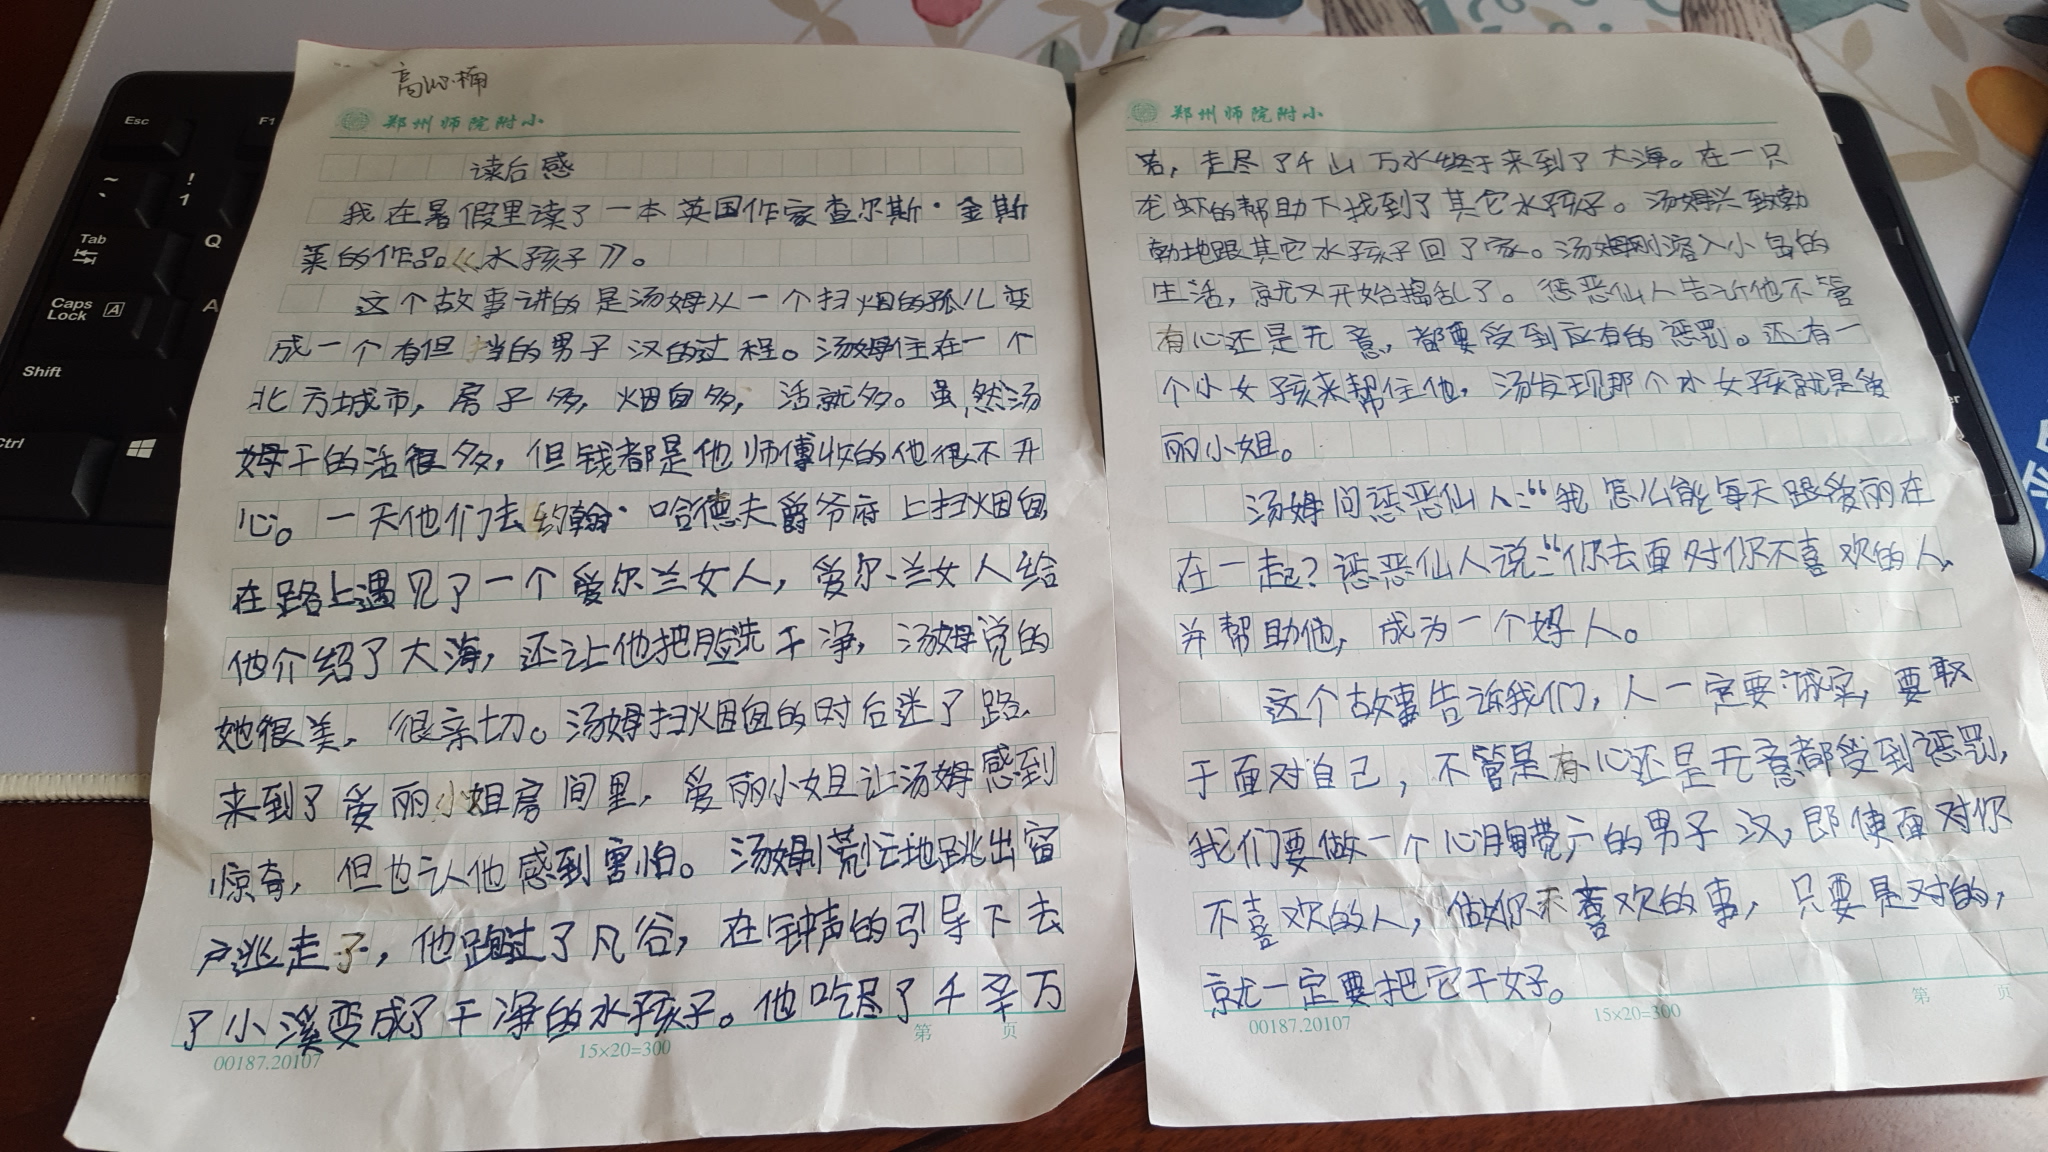 郑州师院附小
读后感
我在暑假里读了一本英国作家查尔斯·金斯
莱的作品《水孩子》。
这个故事讲的是汤姆从一个扫烟的孤儿变
成一个有但当的男子汉的过程。汤姆住在一个
北方城市,房子多,烟囱多,活就多。虽然汤
姆干的活很多,但钱都是他师傅收的他很不开
心。一天他们去约翰·哈德夫爵爷府上扫烟囱
在路上遇见了一个爱尔兰女人,爱尔兰女人给
他介绍了大海,还让他把脸洗干净,汤姆觉的
她很美,很亲切。汤姆扫烟囱的时后迷了路,
来到了爱丽小姐房间里,爱丽小姐让汤姆感到
惊奇,但也认他感到害怕。汤姆慌忙地跳出窗
户逃走了,他跑过了凡谷,在钟声的引导下去
了小溪变成了干净的水孩子。他吃尽了千辛万
00187.20107
15×20=300
第 页
郑州师院附小
苦,走尽了千山万水终于来到了大海。在一只
龙虾的帮助下找到了其它水孩子。汤姆兴致勃
勃地跟其它水孩子回了家。汤姆刚溶入小岛的
生活,就又开始捣乱了。惩恶仙人告诉他不管
有心还是无意,都要受到应有的惩罚。还有一
个小女孩来帮住他,汤发现那个小女孩就是爱
丽小姐。
汤姆问惩恶仙人:“我怎么能每天跟爱丽在
在一起?惩恶仙人说:“你去面对你不喜欢的人,
并帮助他,成为一个好人。
这个故事告诉我们,人一定要诚实,要敢
于面对自己,不管是有心还是无意都受到惩罚,
我们要做一个心胸宽广的男子汉,即使面对你
不喜欢的人,做你不喜欢的事,只要是对的,
就一定要把它干好。
00187.20107
15×20=300
第 页
Esc
F1
Tab
Q
Caps Lock
A
Shift
Ctrl